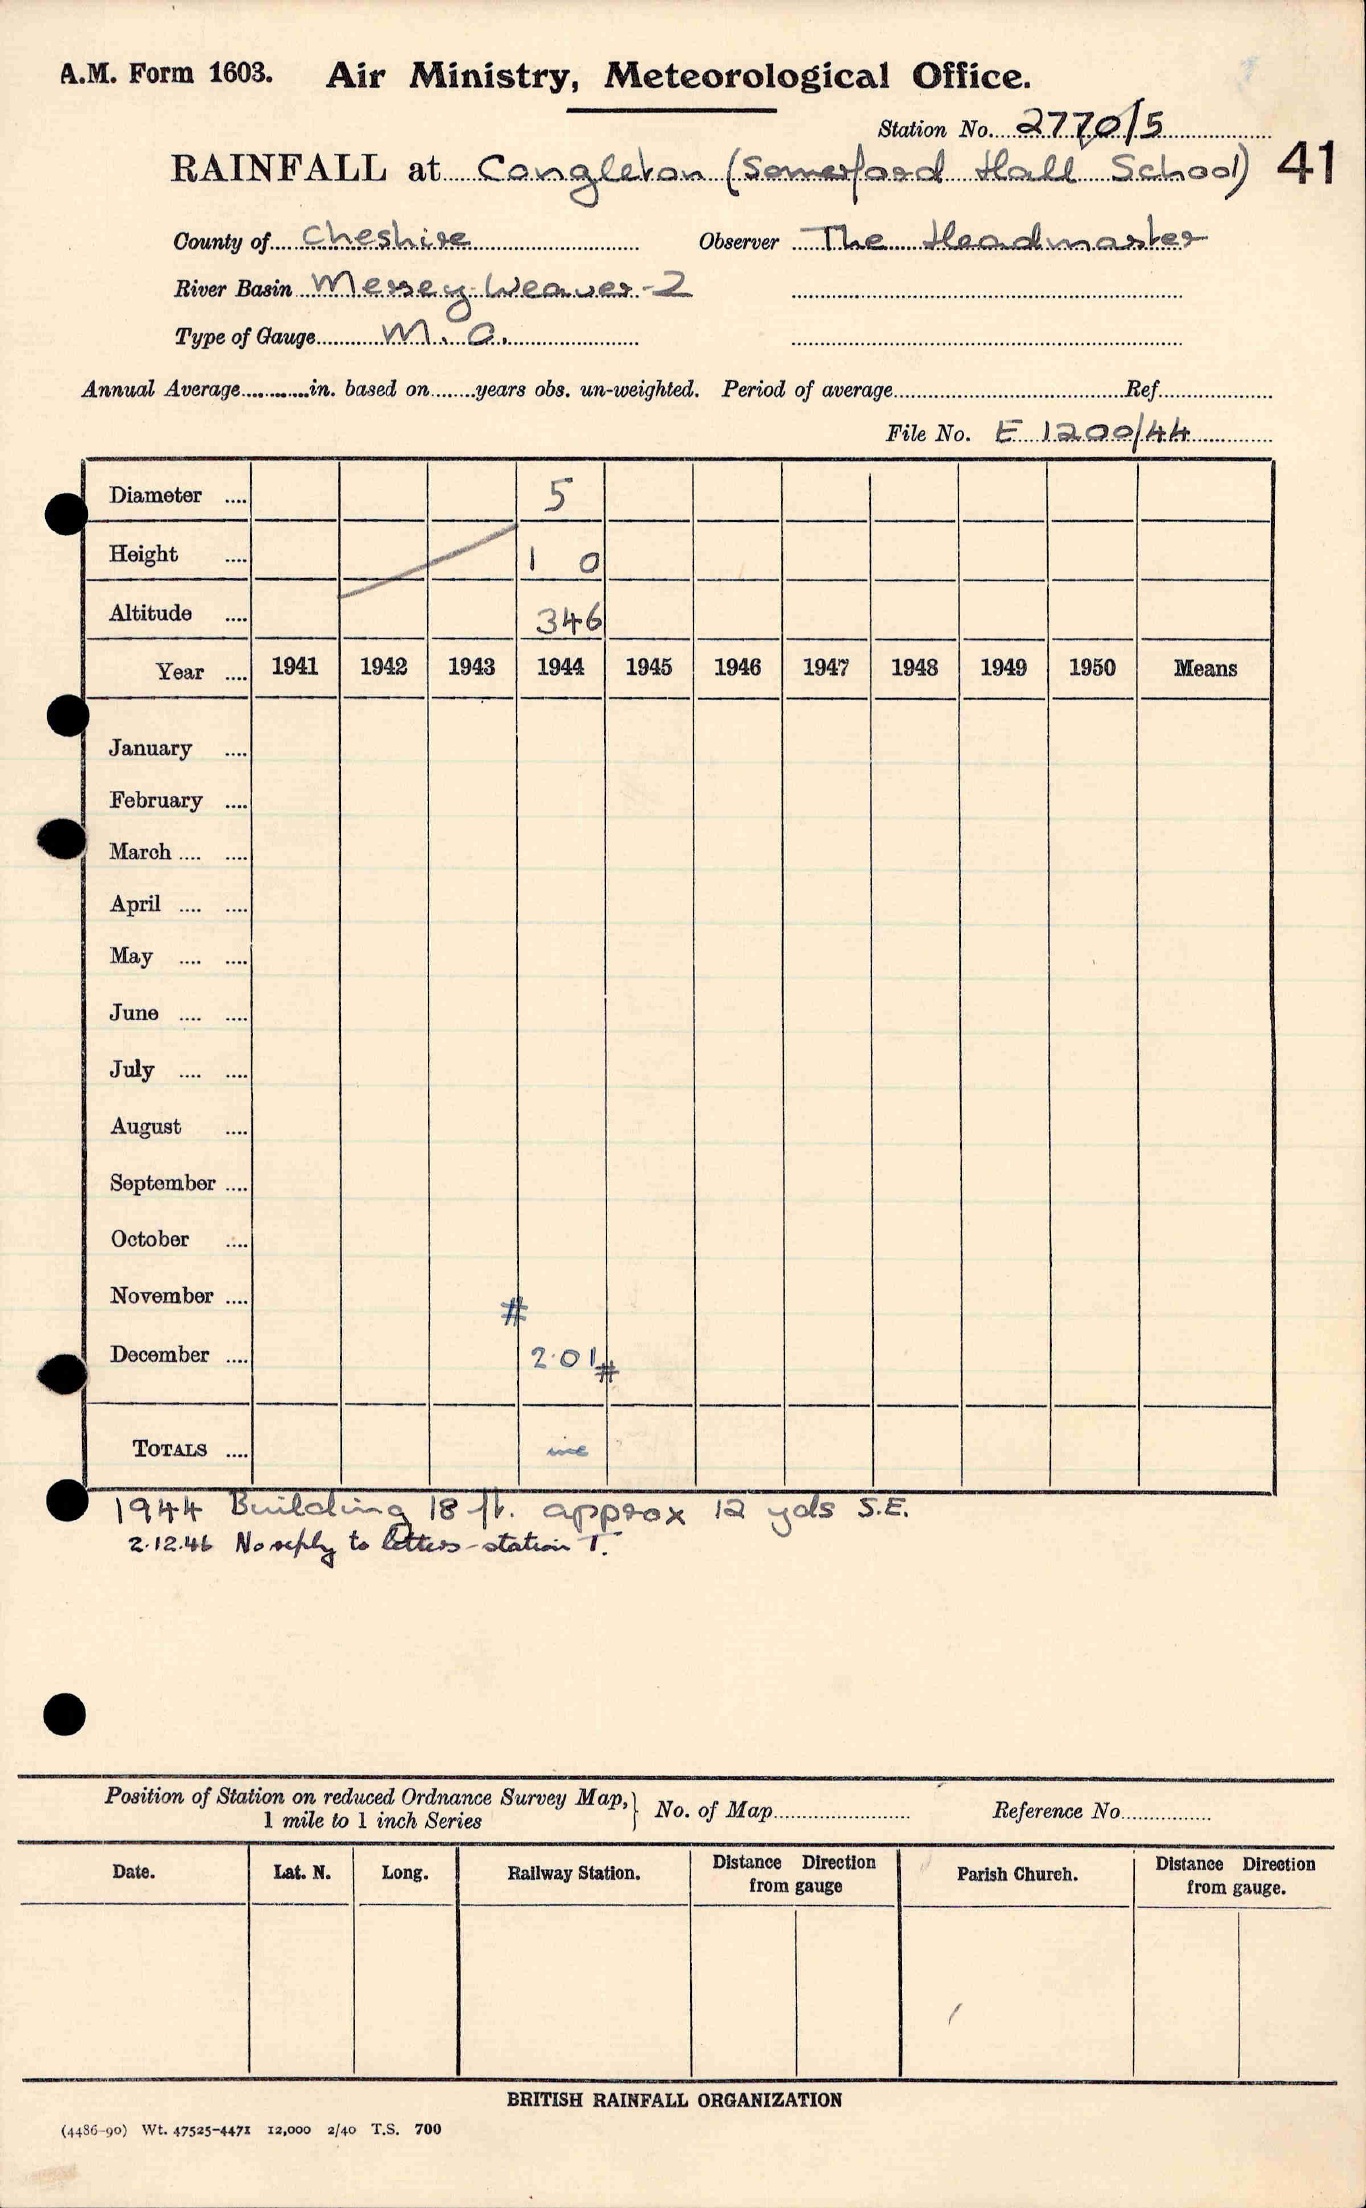 A.M. Form 1603. Air Ministry, Meteorological Office.
Station No. 2770/5
RAINFALL at Congleton (Somerford Hall School) 41
County of Cheshire Observer The Headmaster
River Basin Mersey-Weaver-2
Type of Gauge M.O.
Annual Average............in. based on........years obs. un-weighted. Period of average........Ref........
File No. E 1200/44
Diameter .... 5
Height .... 1 0
Altitude .... 346
Year .... 1941 1942 1943 1944 1945 1946 1947 1948 1949 1950 Means
January ....
February ....
March .... ....
April .... ....
May .... ....
June .... ....
July .... ....
August ....
September ....
October ....
November .... #
December .... 2.01 #
TOTALS .... inc
1944 Building 18 ft. approx 12 yds S.E.
2.12.46 No reply to letters - station T.
Position of Station on reduced Ordnance Survey Map, 1 mile to 1 inch Series } No. of Map........ Reference No........
Date. Lat. N. Long. Railway Station. Distance Direction from gauge Parish Church. Distance Direction from gauge.
BRITISH RAINFALL ORGANIZATION
(4486-90) Wt. 47525-4471 12,000 2/40 T.S. 700